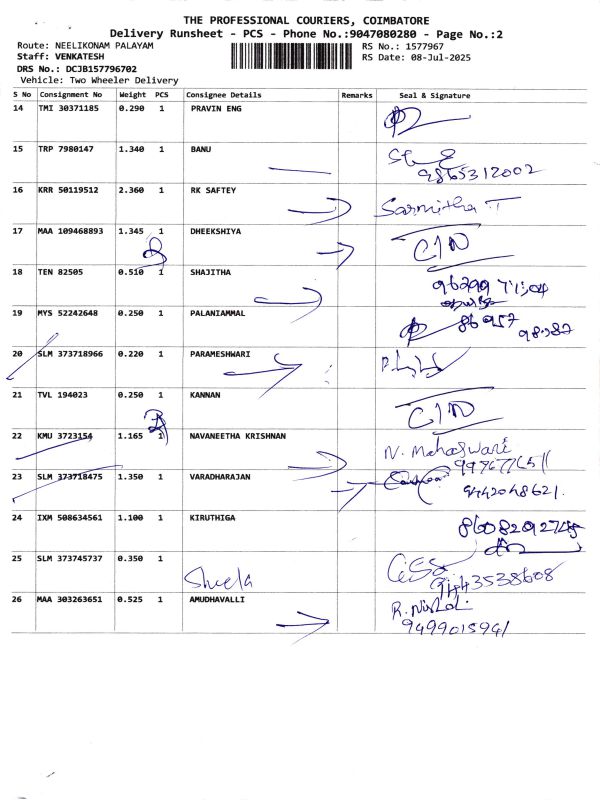 THE PROFESSIONAL COURIERS, COIMBATORE
Delivery Runsheet - PCS - Phone No.:9047080280 - Page No.:2
Route: NEELIKONAM PALAYAM RS No.: 1577967
Staff: VENKATESH RS Date: 08-Jul-2025
DRS No.: DCJB157796702
Vehicle: Two Wheeler Delivery
S No Consignment No Weight PCS Consignee Details Remarks Seal & Signature
14 TMI 30371185 0.290 1 PRAVIN ENG
15 TRP 7980147 1.340 1 BANU
9865312002
16 KRR 50119512 2.360 1 RK SAFTEY Sarmitha T
17 MAA 109468893 1.345 1 DHEEKSHIYA
18 TEN 82505 0.510 1 SHAJITHA
19 MYS 52242648 0.250 1 PALANIAMMAL 86957
98387
20 SLM 373718966 0.220 1 PARAMESHWARI
21 TVL 194023 0.250 1 KANNAN
22 KMU 3723154 1.165 1 NAVANEETHA KRISHNAN N. Maheswari
23 SLM 373718475 1.350 1 VARADHARAJAN
9442048621.
24 IXM 508634561 1.100 1 KIRUTHIGA
25 SLM 373745737 0.350 1
Sheela 9443538608
26 MAA 303263651 0.525 1 AMUDHAVALLI
9499015941